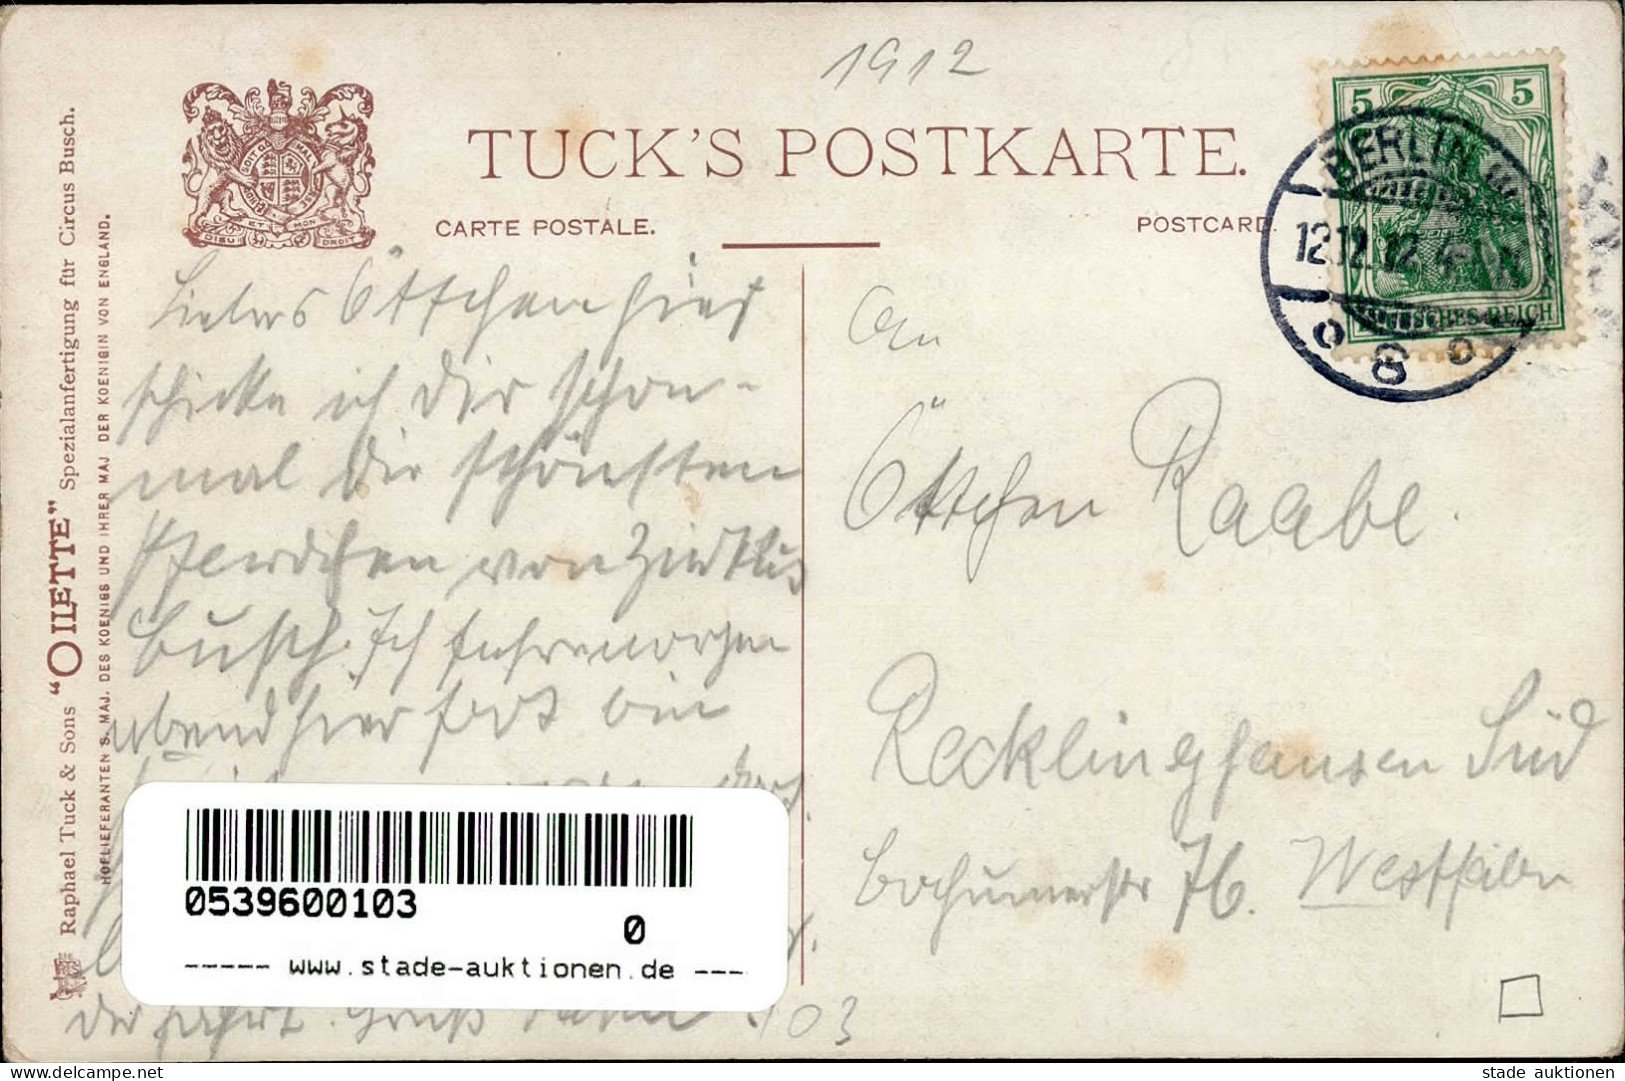 1912
TUCK'S POSTKARTE.
CARTE POSTALE.
POSTCARD.
5 5
DEUTSCHES REICH
BERLIN
12.12.12.
8
DIEU ET MON DROIT
Raphael Tuck & Sons "OILETTE" Spezialanfertigung für Circus Busch.
HOFLIEFERANTEN S. MAJ. DES KOENIGS UND IHRER MAJ DER KOENIGIN VON ENGLAND.
Liebes Ottchen hier
schicke ich Dir schon-
mal die schönsten
Pferdchen von Zirkus
Busch. Ich fahre morgen
abend hier fort bin
der Fahrt. Gruß
An
Ottchen Raabe.
Recklinghausen Süd
Bochumerstr 76. Westfalen
103
0539600103
0
----- www.stade-auktionen.de ---
www.delcampe.net
stade auktionen